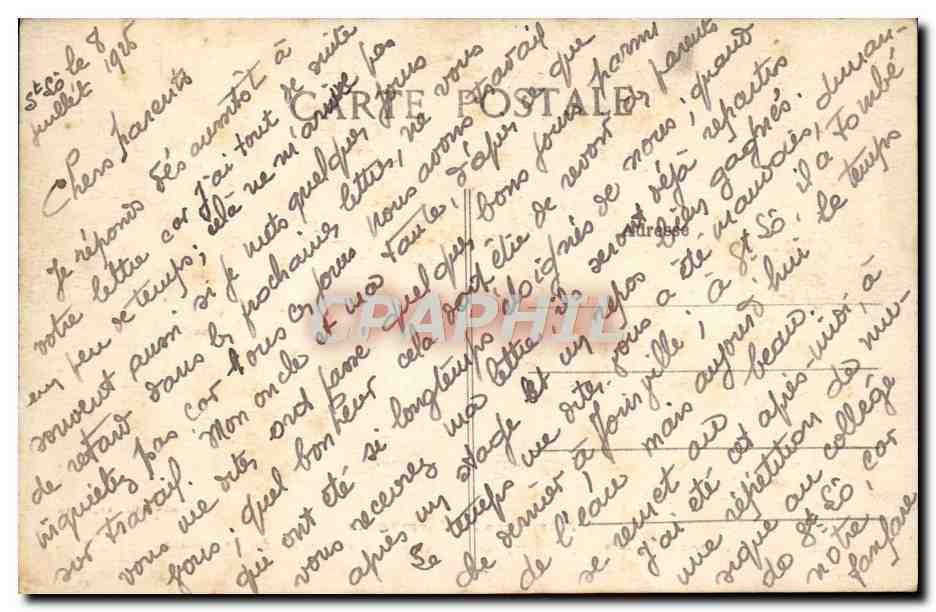 St Lô le 8
juillet 1925
Chers parents
Je réponds dès aussitôt à
votre lettre car j'ai tout de suite
un peu de temps; celà ne m'arrive pas
souvent aussi si je mets quelques jours
de retard dans les prochaines lettres, ne vous
inquiétez pas car tous ces jours nous avons travail
sur travail. Mon oncle et ma tante, d'après ce que
vous me dites ont passé quelques bons jours parmi
vous; quel bonheur cela doit être de revoir des parents
qui ont été si longtemps éloignés de nous; quand
vous recevrez ma lettre ils seront déjà repartis
après un stage et un repos bien gagnés.
Le temps me dites-vous a été mauvais, diman-
che dernier à Joinville; à St Lô, il a tombé
de l'eau mais aujourd'hui le temps
se remet au beau.
J'ai été cet après-midi à
une répétition de mu-
sique au collège
de St Lô, car
notre
fanfare
CARTE POSTALE
Adresse
CPAPHIL